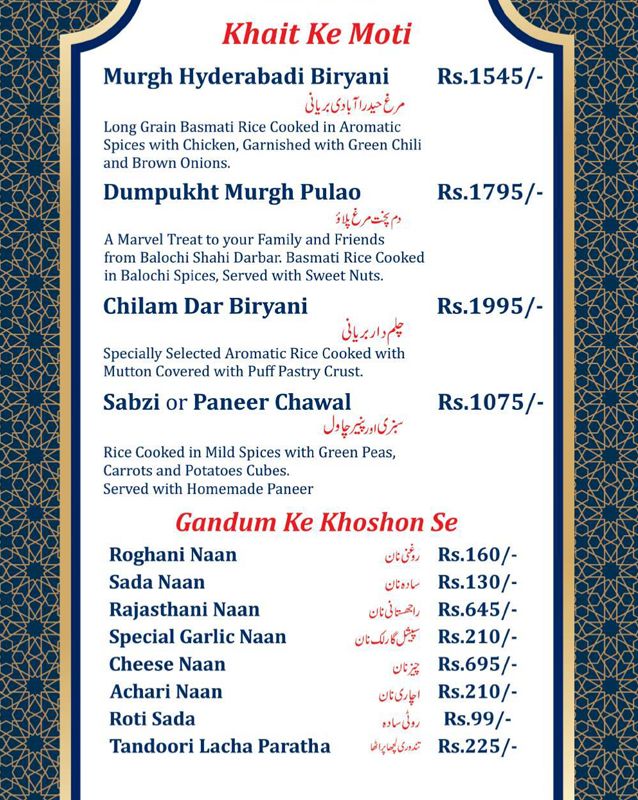 Khait Ke Moti
Murgh Hyderabadi Biryani Rs.1545/-
مرغ حیدرآبادی بریانی
Long Grain Basmati Rice Cooked in Aromatic
Spices with Chicken, Garnished with Green Chili
and Brown Onions.
Dumpukht Murgh Pulao Rs.1795/-
دم پخت مرغ پلاؤ
A Marvel Treat to your Family and Friends
from Balochi Shahi Darbar. Basmati Rice Cooked
in Balochi Spices, Served with Sweet Nuts.
Chilam Dar Biryani Rs.1995/-
چلم دار بریانی
Specially Selected Aromatic Rice Cooked with
Mutton Covered with Puff Pastry Crust.
Sabzi or Paneer Chawal Rs.1075/-
سبزی اور پنیر چاول
Rice Cooked in Mild Spices with Green Peas,
Carrots and Potatoes Cubes.
Served with Homemade Paneer
Gandum Ke Khoshon Se
Roghani Naan روغنی نان Rs.160/-
Sada Naan سادہ نان Rs.130/-
Rajasthani Naan راجھستانی نان Rs.645/-
Special Garlic Naan سپیشل گارلک نان Rs.210/-
Cheese Naan چیز نان Rs.695/-
Achari Naan اچاری نان Rs.210/-
Roti Sada روٹی سادہ Rs.99/-
Tandoori Lacha Paratha تندوری لچھا پراٹھا Rs.225/-